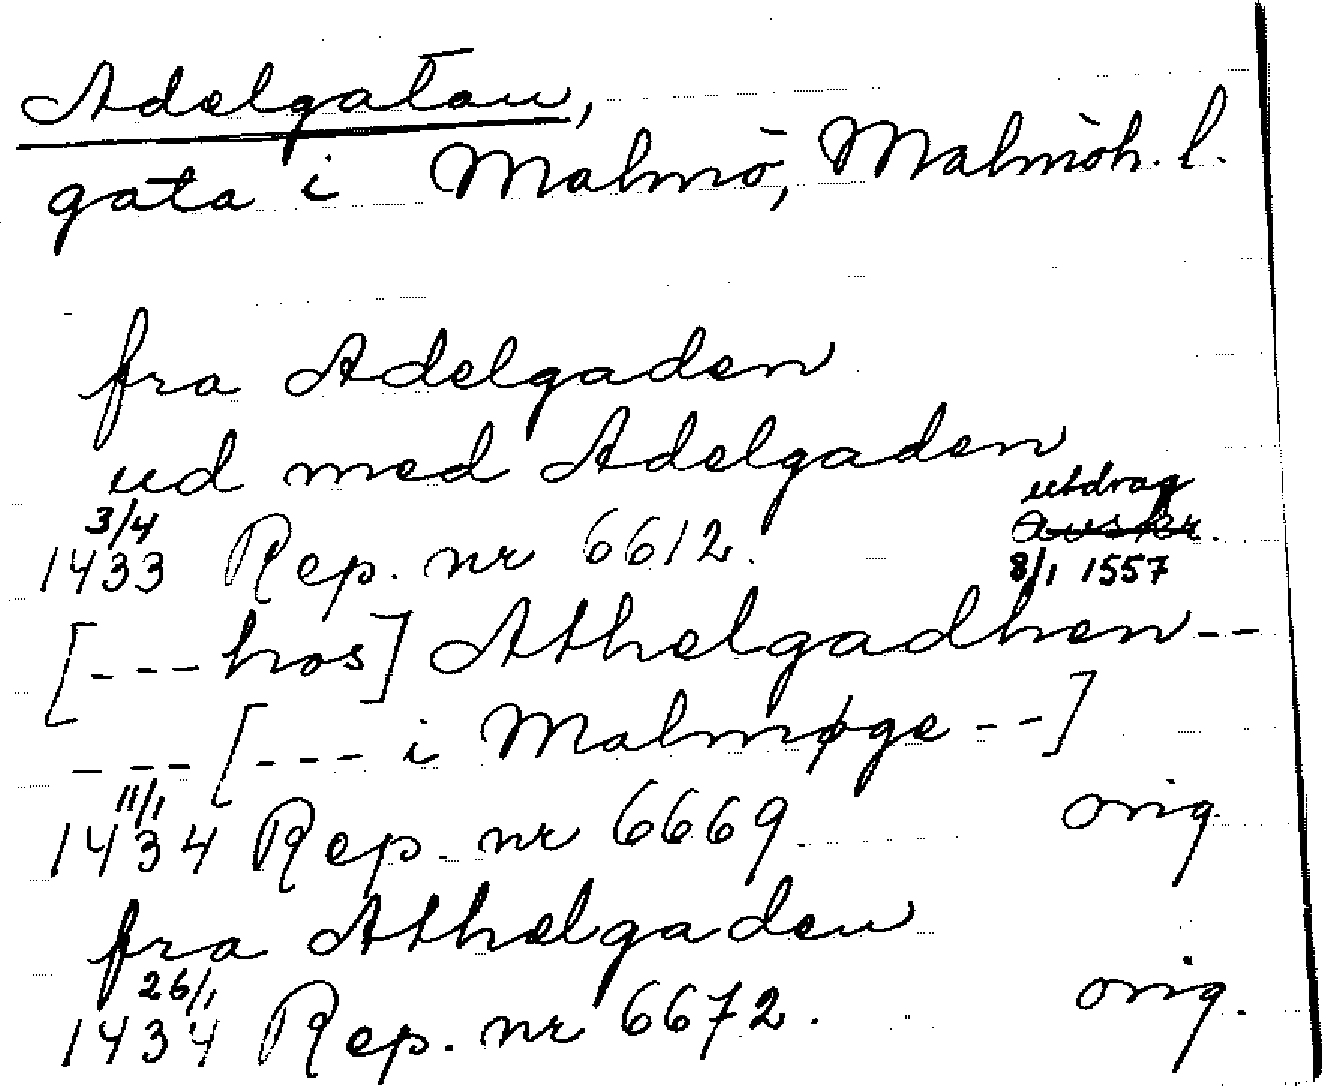 Adelgatan,
gata i Malmö, Malmöh. l.
fra Adelgaden
ud med Adelgaden
utdrag
3/4 1433 Rep. nr 6612. avskr.
8/1 1557
[---hos] Athelgadhen--
---[--- i Malmøge --]
11/1 1434 Rep. nr 6669 orig.
fra Athelgaden
26/1 1434 Rep. nr 6672. orig.